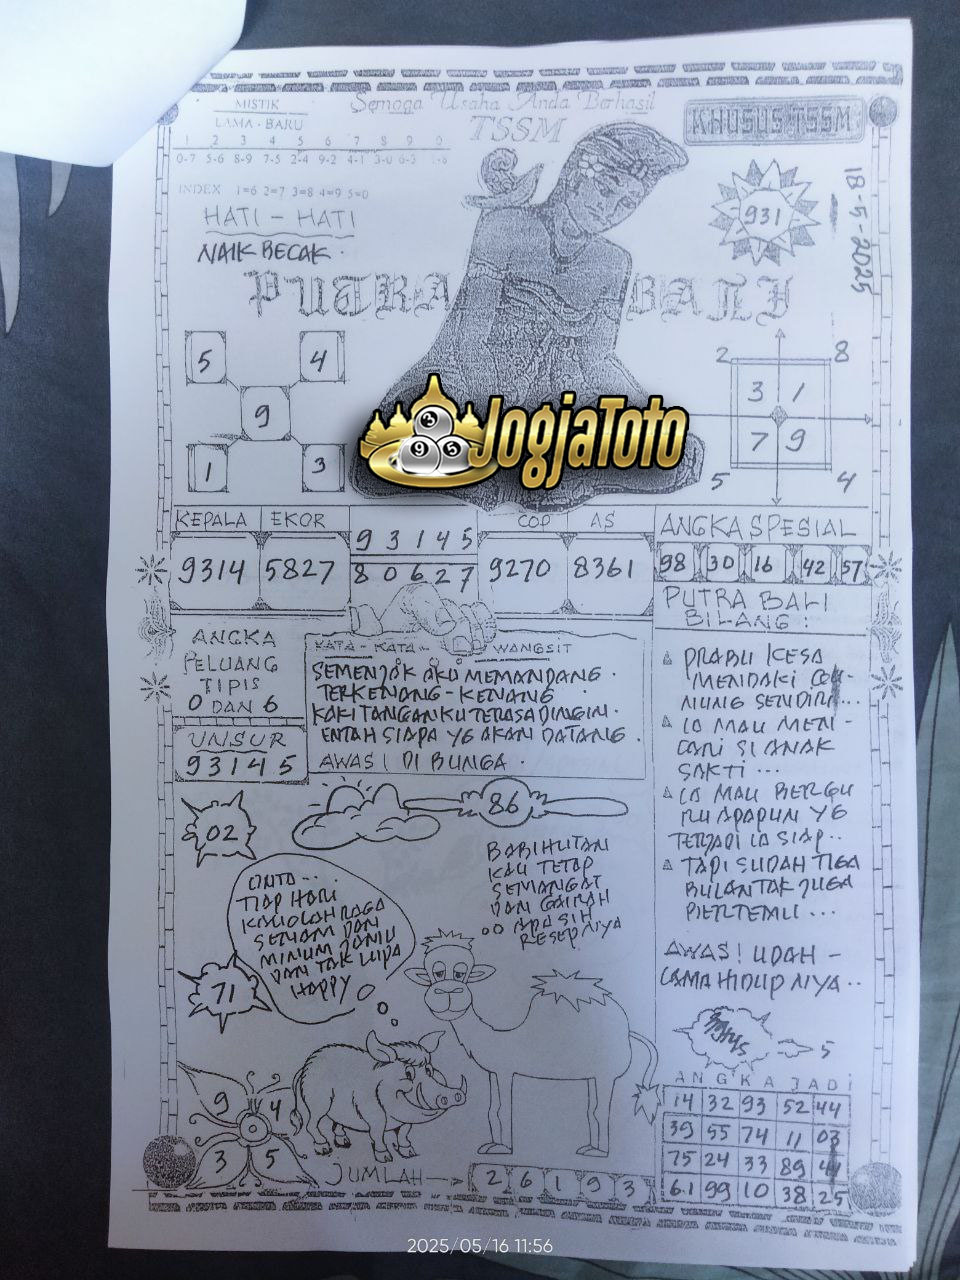 MISTIK
LAMA - BARU
1 2 3 4 5 6 7 8 9 0
0-7 5-6 8-9 7-5 2-4 9-2 4-1 3-0 6-3
INDEX 1=6 2=7 3=8 4=9 5=0
Semoga Usaha Anda Berhasil
TSSM
KHUSUS TSSM
HATI - HATI
NAIK BECAK .
931
18-5-2025
PUTRA BALI
5 4
9
1 3
2 8
3 1
7 9
5 4
JogjaToto
3
9 5
KEPALA EKOR
9314 5827
9 3 1 4 5
8 0 6 2 7
COP AS
9270 8361
ANGKA SPESIAL
98 30 16 42 57
ANGKA
PELUANG
TIPIS
0 DAN 6
UNSUR
93145
KATA - KATA WANGSIT
SEMENJAK AKU MEMANDANG .
TERKENANG - KENANG
KAKI TANGANKU TERASA DINGIN .
ENTAH SIAPA YG AKAN DATANG .
AWAS ! DI BUNGA .
PUTRA BALI
BILANG :
PRABU KESA
MENDAKI
NUNG SENDIRI...
IA MAU MEN -
CARI SI ANAK
SAKTI ...
IA MAU BERGU
RU APAPUN YG
TERJADI IA SIAP..
TAPI SUDAH TIGA
BULAN TAK JUGA
BERTEMU ...
AWAS ! UDAH -
LAMA HIDUP NYA ..
02
86
CINTA ...
TIAP HARI
KAU OLAH RAGA
SENAM DAN
MINUM JAMU
DAN TAK LUPA
HAPPY
BABI HUTAN
KAU TETAP
SEMANGAT
DAN GAIRAH
APA SIH
RESEP NYA
71
5
9 4
3 5
JUMLAH
2 6 1 9 3
ANGKA JADI
14 32 93 52 44
39 55 74 11 03
75 24 33 89
61 99 10 38 25
2025/05/16 11:56